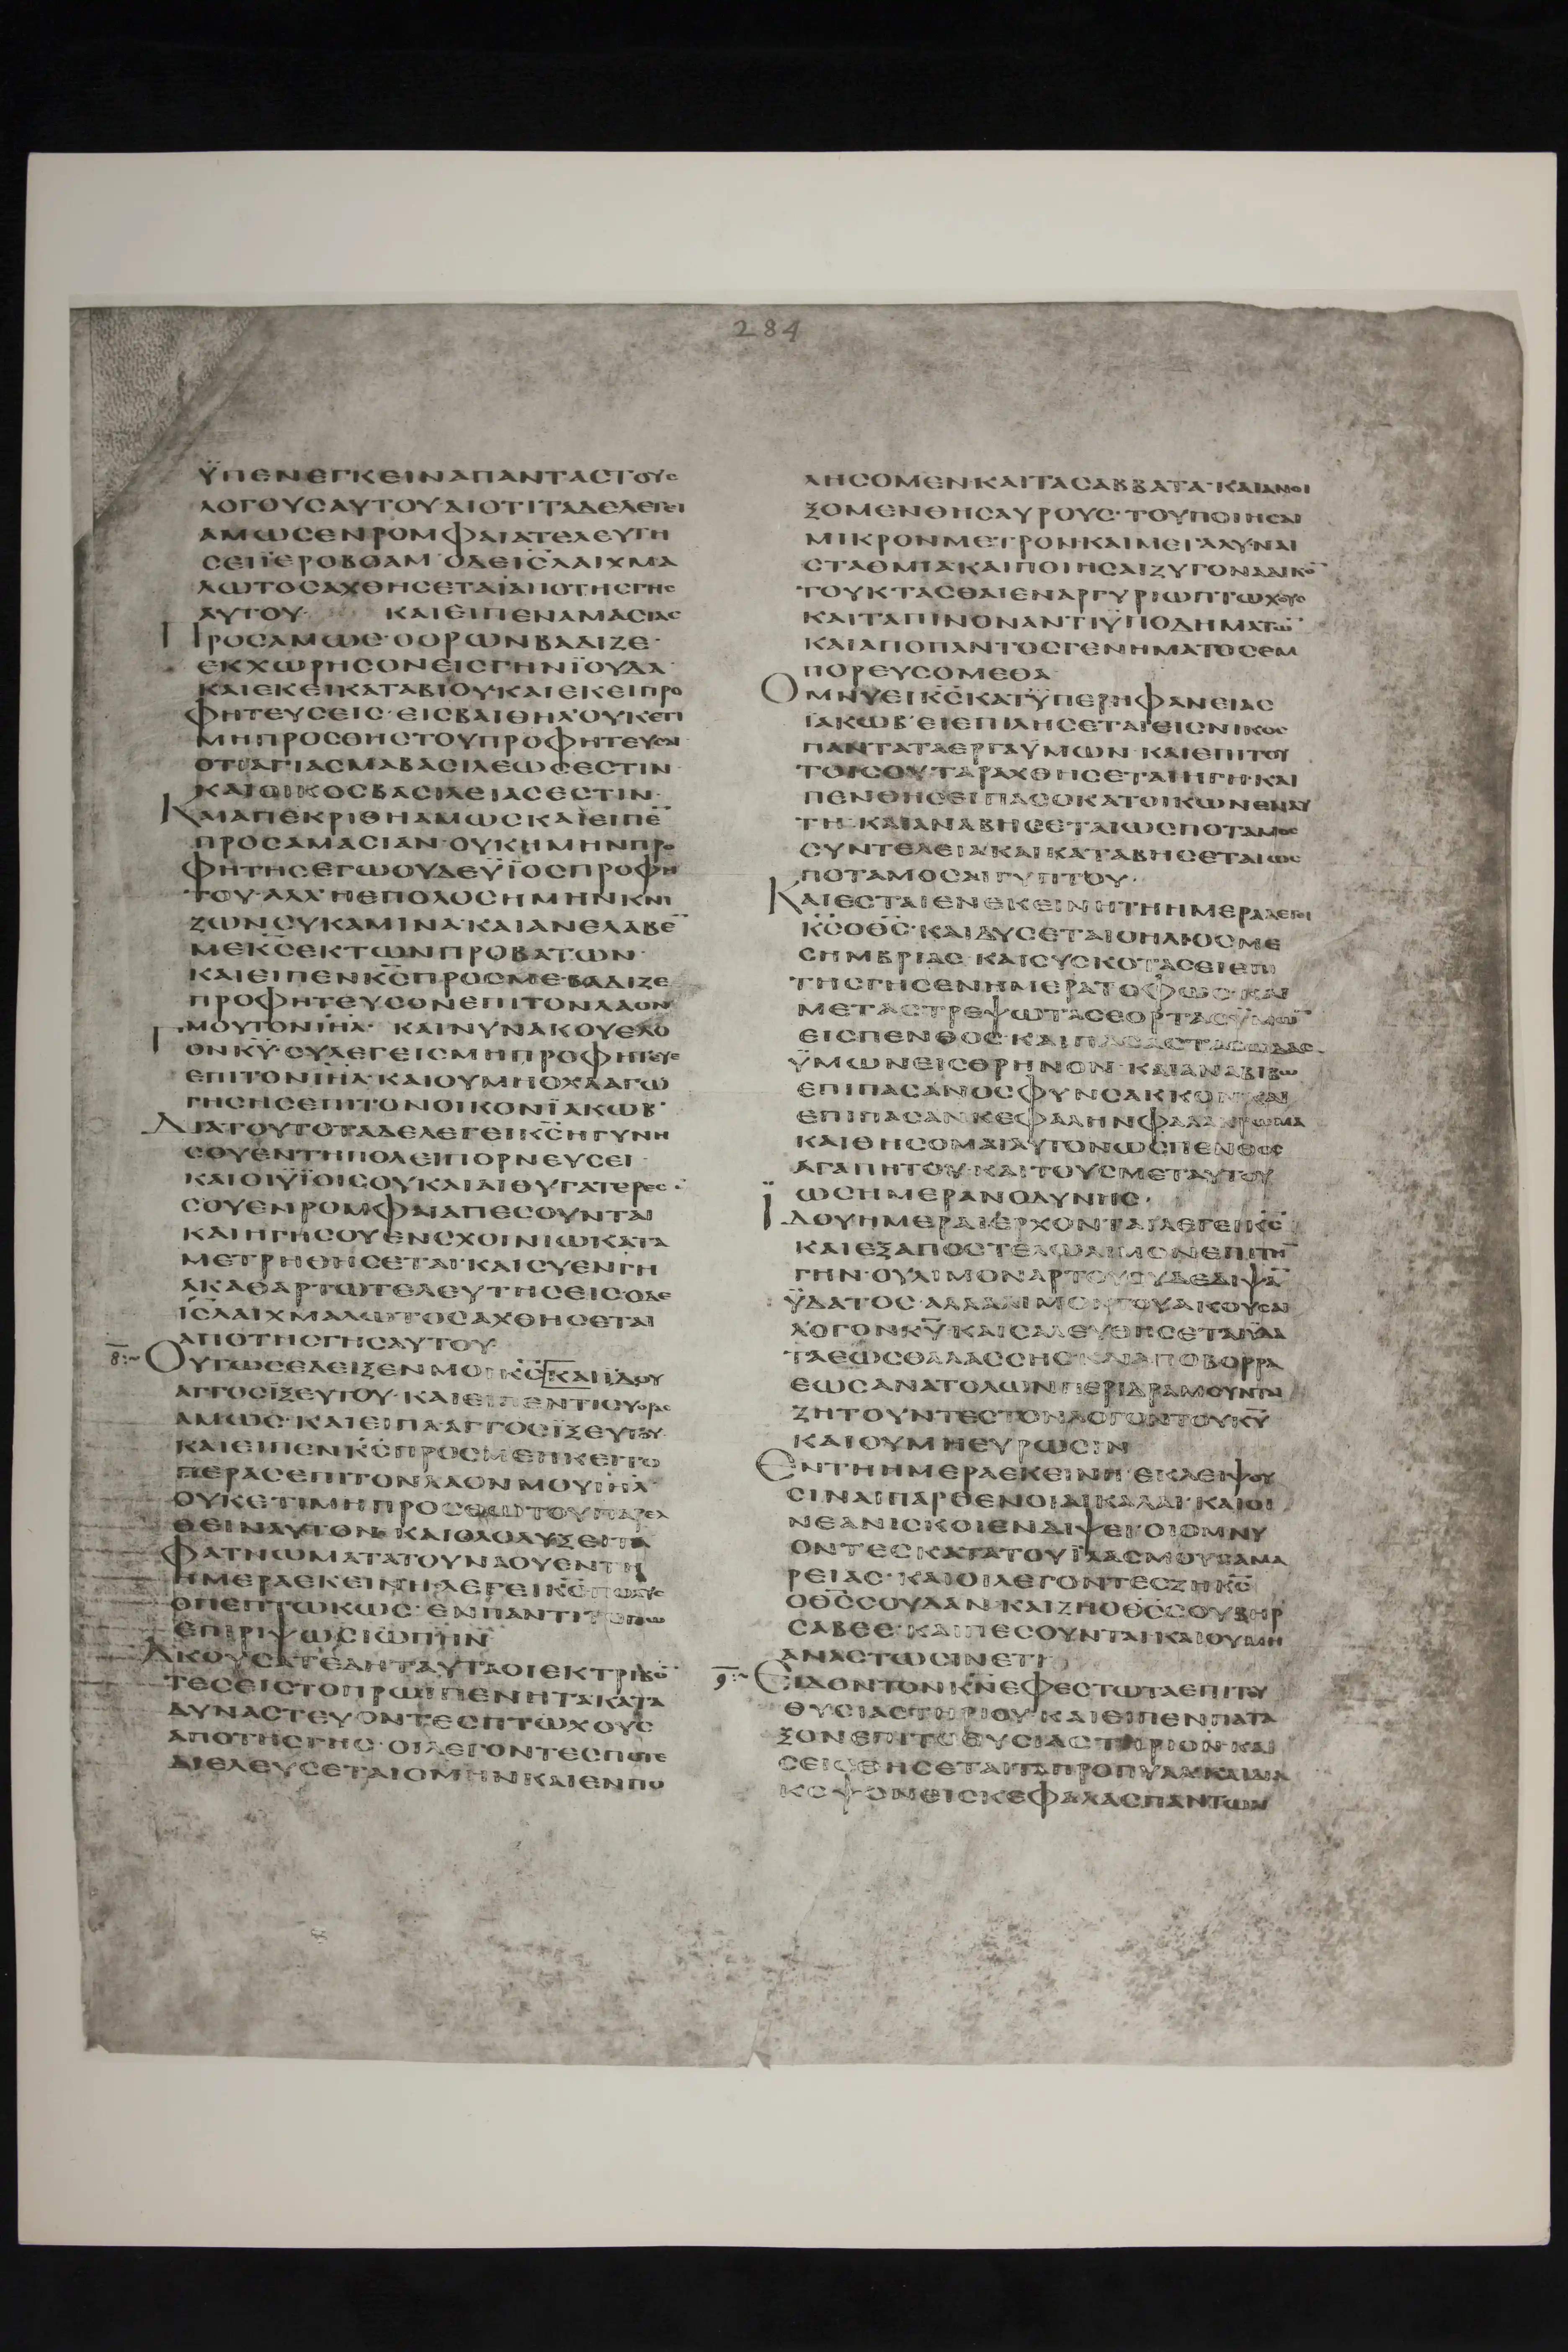 284
ΫΠΕΝΕΓΚΕΙΝΑΠΑΝΤΑΣΤΟΥΣ
ΛΟΓΟΥΣΑΥΤΟΥ·ΔΙΟΤΙΤΑΔΕΛΕΓΕΙ
ΑΜΩΣΕΝΡΟΜΦΑΙΑΤΕΛΕΥΤΗ
ΣΕΙΪΕΡΟΒΟΑΜ·ΟΔΕΙΣΛΑΙΧΜΑ
ΛΩΤΟΣΑΧΘΗΣΕΤΑΙΑΠΟΤΗΣΓΗΣ
ΑΥΤΟΥ· ΚΑΙΕΙΠΕΝΑΜΑΣΙΑΣ
ΠΡΟΣΑΜΩΣ·ΟΟΡΩΝΒΑΔΙΖΕ·
ΕΚΧΩΡΗΣΟΝΕΙΣΓΗΝΪΟΥΔΑ·
ΚΑΙΕΚΕΙΚΑΤΑΒΙΟΥΚΑΙΕΚΕΙΠΡΟ
ΦΗΤΕΥΣΕΙΣ·ΕΙΣΒΑΙΘΗΛ'ΟΥΚΕΤΙ
ΜΗΠΡΟΣΘΗΣΤΟΥΠΡΟΦΗΤΕΥΣΑΙ
ΟΤΙΑΓΙΑΣΜΑΒΑΣΙΛΕΩΣΕΣΤΙΝ·
ΚΑΙΟΙΚΟΣΒΑΣΙΛΕΙΑΣΕΣΤΙΝ·
ΚΑΙΑΠΕΚΡΙΘΗΑΜΩΣΚΑΙΕΙΠΕ̅
ΠΡΟΣΑΜΑΣΙΑΝ·ΟΥΚΗΜΗΝΠΡΟ
ΦΗΤΗΣΕΓΩΟΥΔΕΫΪΟΣΠΡΟΦΗ
ΤΟΥ·ΑΛΛ'ΗΕΠΟΛΟΣΗΜΗΝΚΝΙ
ΖΩΝΣΥΚΑΜΙΝΑ·ΚΑΙΑΝΕΛΑΒΕ̅
ΜΕΚ̅Σ̅ΕΚΤΩΝΠΡΟΒΑΤΩΝ·
ΚΑΙΕΙΠΕΝΚ̅Σ̅ΠΡΟΣΜΕ·ΒΑΔΙΖΕ
ΠΡΟΦΗΤΕΥΣΟΝΕΠΙΤΟΝΛΑΟΝ
ΜΟΥΤΟΝΙ̅Η̅Λ̅· ΚΑΙΝΥΝΑΚΟΥΕΛΟ
ΓΟΝΚ̅Υ̅·ΣΥΛΕΓΕΙΣΜΗΠΡΟΦΗΤΕΥΕ
ΕΠΙΤΟΝΙ̅Η̅Λ̅·ΚΑΙΟΥΜΗΟΧΛΑΓΩ
ΓΗΣΗΣΕΠΙΤΟΝΟΙΚΟΝΪΑΚΩΒ·
ΔΙΑΤΟΥΤΟΤΑΔΕΛΕΓΕΙΚ̅Σ̅ΗΓΥΝΗ
ΣΟΥΕΝΤΗΠΟΛΕΙΠΟΡΝΕΥΣΕΙ·
ΚΑΙΟΙΫΪΟΙΣΟΥΚΑΙΑΙΘΥΓΑΤΕΡΕΣ·
ΣΟΥΕΝΡΟΜΦΑΙΑΠΕΣΟΥΝΤΑΙ
ΚΑΙΗΓΗΣΟΥΕΝΣΧΟΙΝΙΩΚΑΤΑ
ΜΕΤΡΗΘΗΣΕΤΑΙ·ΚΑΙΣΥΕΝΓΗ
ΑΚΑΘΑΡΤΩΤΕΛΕΥΤΗΣΕΙΣ·ΟΔΕ
ΙΣΛΑΙΧΜΑΛΩΤΟΣΑΧΘΗΣΕΤΑΙ
ΑΠΟΤΗΣΓΗΣΑΥΤΟΥ·
ΟΥΤΩΣΕΔΕΙΞΕΝΜΟΙΚ̅Σ̅ΚΑΙΪΔΟΥ
ΑΓΓΟΣΪΞΕΥΤΟΥ·ΚΑΙΕΙΠΕΝΤΙΣΥΟΡΑΣ
ΑΜΩΣ·ΚΑΙΕΙΠΑΑΓΓΟΣΪΞΕΥΤΟΥ
ΚΑΙΕΙΠΕΝΚ̅Σ̅ΠΡΟΣΜΕΗΚΕΙΤΟ
ΠΕΡΑΣΕΠΙΤΟΝΛΑΟΝΜΟΥΙ̅Η̅Λ̅·
ΟΥΚΕΤΙΜΗΠΡΟΣΘΩΤΟΥΠΑΡΕΛ
ΘΕΙΝΑΥΤΟΝ·ΚΑΙΟΛΟΛΥΞΕΙΤΑ
ΦΑΤΝΩΜΑΤΑΤΟΥΝΑΟΥΕΝΤΗ
ΗΜΕΡΑΕΚΕΙΝΗΛΕΓΕΙΚ̅Σ̅·ΠΟΛΥΣ
ΟΠΕΠΤΩΚΩΣ·ΕΝΠΑΝΤΙΤΟΠΩ
ΕΠΙΡΙΨΩΣΙΩΠΗΝ
ΑΚΟΥΣΑΤΕΔΗΤΑΥΤΑΟΙΕΚΤΡΙΒΟ̅
ΤΕΣΕΙΣΤΟΠΡΩΙΠΕΝΗΤΑΚΑΤΑ
ΔΥΝΑΣΤΕΥΟΝΤΕΣΠΤΩΧΟΥΣ
ΑΠΟΤΗΣΓΗΣ·ΟΙΛΕΓΟΝΤΕΣΠΟΤΕ
ΔΙΕΛΕΥΣΕΤΑΙΟΜΗΝΚΑΙΕΝΠΟ
ΛΗΣΟΜΕΝ·ΚΑΙΤΑΣΑΒΒΑΤΑ·ΚΑΙΑΝΟΙ
ΞΟΜΕΝΘΗΣΑΥΡΟΥΣ·ΤΟΥΠΟΙΗΣΑΙ
ΜΙΚΡΟΝΜΕΤΡΟΝΚΑΙΜΕΓΑΛΥΝΑΙ
ΣΤΑΘΜΙΑ·ΚΑΙΠΟΙΗΣΑΙΖΥΓΟΝΑΔΙΚΟ̅
ΤΟΥΚΤΑΣΘΑΙΕΝΑΡΓΥΡΙΩΠΤΩΧΟΥΣ
ΚΑΙΤΑΠΙΝΟΝΑΝΤΙΫΠΟΔΗΜΑΤΩ̅
ΚΑΙΑΠΟΠΑΝΤΟΣΓΕΝΗΜΑΤΟΣΕΜ
ΠΟΡΕΥΣΟΜΕΘΑ
ΟΜΝΥΕΙΚ̅Σ̅ΚΑΤΫΠΕΡΗΦΑΝΕΙΑΣ
ΪΑΚΩΒ·ΕΙΕΠΙΛΗΣΕΤΑΙΕΙΣΝΙΚΟΣ
ΠΑΝΤΑΤΑΕΡΓΑΫΜΩΝ·ΚΑΙΕΠΙΤΟΥ
ΤΟΙΣΟΥΤΑΡΑΧΘΗΣΕΤΑΙΗΓΗ·ΚΑΙ
ΠΕΝΘΗΣΕΙΠΑΣΟΚΑΤΟΙΚΩΝΕΝΑΥ
ΤΗ·ΚΑΙΑΝΑΒΗΣΕΤΑΙΩΣΠΟΤΑΜΟΣ
ΣΥΝΤΕΛΕΙΑ·ΚΑΙΚΑΤΑΒΗΣΕΤΑΙΩΣ
ΠΟΤΑΜΟΣΑΙΓΥΠΤΟΥ·
ΚΑΙΕΣΤΑΙΕΝΕΚΕΙΝΗΤΗΗΜΕΡΑΛΕΓΕΙ
Κ̅Σ̅ΟΘ̅Σ̅·ΚΑΙΔΥΣΕΤΑΙΟΗΛΙΟΣΜΕ
ΣΗΜΒΡΙΑΣ·ΚΑΙΣΥΣΚΟΤΑΣΕΙΕΠΙ
ΤΗΣΓΗΣΕΝΗΜΕΡΑΤΟΦΩΣ·ΚΑΙ
ΜΕΤΑΣΤΡΕΨΩΤΑΣΕΟΡΤΑΣΫΜΩ̅
ΕΙΣΠΕΝΘΟΣ·ΚΑΙΠΑΣΑΣΤΑΣΩΔΑΣ
ΫΜΩΝΕΙΣΘΡΗΝΟΝ·ΚΑΙΑΝΑΒΙΒΩ
ΕΠΙΠΑΣΑΝΟΣΦΥΝΣΑΚΚΟΝ·ΚΑΙ
ΕΠΙΠΑΣΑΝΚΕΦΑΛΗΝΦΑΛΑΚΡΩΜΑ
ΚΑΙΘΗΣΟΜΑΙΑΥΤΟΝΩΣΠΕΝΘΟΣ
ΑΓΑΠΗΤΟΥ·ΚΑΙΤΟΥΣΜΕΤΑΥΤΟΥ
ΩΣΗΜΕΡΑΝΟΔΥΝΗΣ·
ΪΔΟΥΗΜΕΡΑΙΕΡΧΟΝΤΑΙΛΕΓΕΙΚ̅Σ̅
ΚΑΙΕΞΑΠΟΣΤΕΛΩΛΙΜΟΝΕΠΙΤΗ̅
ΓΗΝ·ΟΥΛΙΜΟΝΑΡΤΟΥΟΥΔΕΔΙΨΑ̅
ΫΔΑΤΟΣ·ΑΛΛΑΛΙΜΟΝΤΟΥΑΚΟΥΣΑΙ
ΛΟΓΟΝΚ̅Υ̅·ΚΑΙΣΑΛΕΥΘΗΣΕΤΑΙΫΔΑ
ΤΑΕΩΣΘΑΛΑΣΣΗΣ·ΚΑΙΑΠΟΒΟΡΡΑ
ΕΩΣΑΝΑΤΟΛΩΝΠΕΡΙΔΡΑΜΟΥΝΤΑΙ
ΖΗΤΟΥΝΤΕΣΤΟΝΛΟΓΟΝΤΟΥΚ̅Υ̅
ΚΑΙΟΥΜΗΕΥΡΩΣΙΝ
ΕΝΤΗΗΜΕΡΑΕΚΕΙΝΗ·ΕΚΛΕΙΨΟΥ
ΣΙΝΑΙΠΑΡΘΕΝΟΙΑΙΚΑΛΑΙ·ΚΑΙΟΙ
ΝΕΑΝΙΣΚΟΙΕΝΔΙΨΕΙ·ΟΙΟΜΝΥ
ΟΝΤΕΣΚΑΤΑΤΟΥΪΛΑΣΜΟΥΣΑΜΑ
ΡΕΙΑΣ·ΚΑΙΟΙΛΕΓΟΝΤΕΣΖΗΚ̅Σ̅
ΟΘ̅Σ̅ΣΟΥΔΑΝ·ΚΑΙΖΗΟΘ̅Σ̅ΣΟΥΒΗΡ
ΣΑΒΕΕ·ΚΑΙΠΕΣΟΥΝΤΑΙ·ΚΑΙΟΥΜΗ
ΑΝΑΣΤΩΣΙΝΕΤΙ
ΕΙΔΟΝΤΟΝΚ̅Ν̅ΕΦΕΣΤΩΤΑΕΠΙΤΟΥ
ΘΥΣΙΑΣΤΗΡΙΟΥ·ΚΑΙΕΙΠΕΝΠΑΤΑ
ΞΟΝΕΠΙΤΟΘΥΣΙΑΣΤΗΡΙΟΝ·ΚΑΙ
ΣΕΙΣΘΗΣΕΤΑΙΤΑΠΡΟΠΥΛΑ·ΚΑΙΔΙΑ
ΚΟΨΟΝΕΙΣΚΕΦΑΛΑΣΠΑΝΤΩΝ